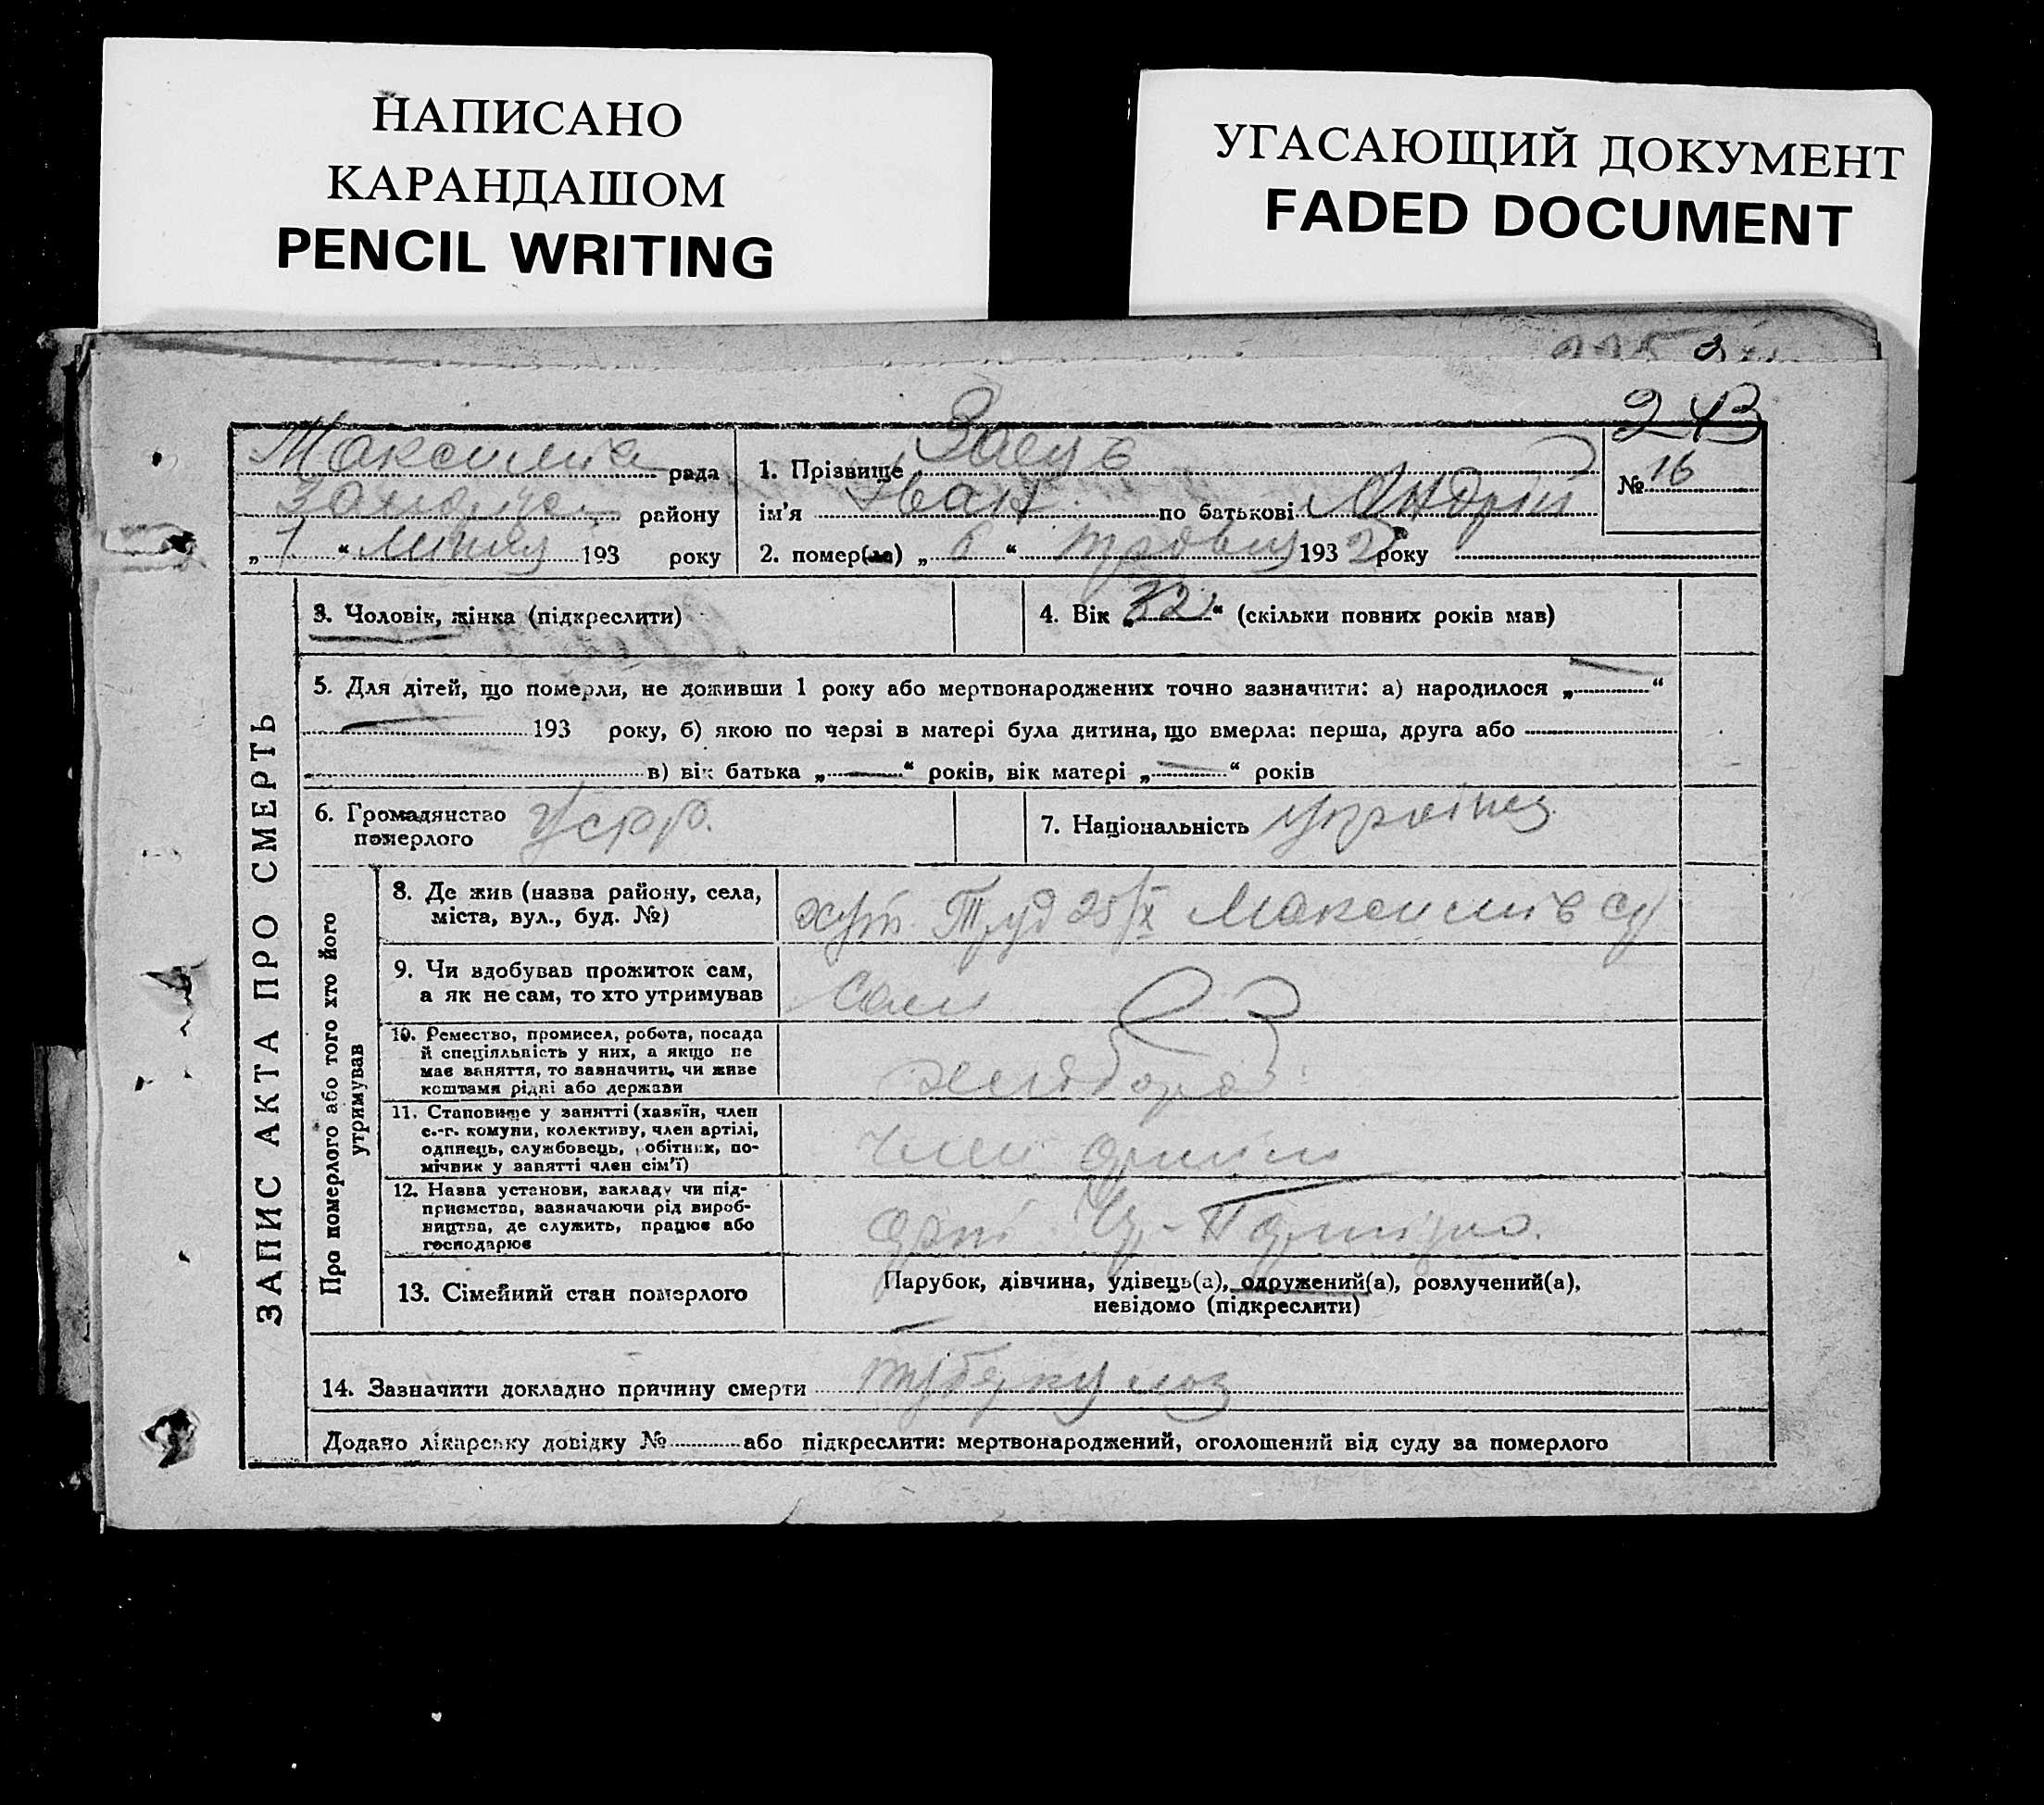 НАПИСАНО
КАРАНДАШОМ
PENCIL WRITING
УГАСАЮЩИЙ ДОКУМЕНТ
FADED DOCUMENT
243
рада
району
„ 1 “ липня 193 року
1. Прізвище Заец
ім'я Іван по батькові Андрій
2. помер(ла) „ 6 “ травня 1932 року
№ 16
ЗАПИС АКТА ПРО СМЕРТЬ
3. Чоловік, жінка (підкреслити)
4. Вік „ 32 “ (скільки повних років мав)
5. Для дітей, що померли, не доживши 1 року або мертвонароджених точно зазначити: а) народилося „ — “
— 193 року, б) якою по черзі в матері була дитина, що вмерла: перша, друга або
в) вік батька „ — “ років, вік матері „ — “ років
6. Громадянство
померлого
УСРР.
7. Національність українец
Про померлого або того хто його
утримував
8. Де жив (назва району, села,
міста, вул., буд. №)
хут. Труд 25/IX Максимів с/
9. Чи вдобував прожиток сам,
а як не сам, то хто утримував
Сам
10. Ремество, промисел, робота, посада
й спеціяльність у них, а якщо не
має заняття, то зазначити, чи живе
коштами рідні або держави
хлібороб
11. Становище у занятті (хазяїн, член
с.-г. комуни, колективу, член артілі,
одинець, службовець, робітник, по-
мічник у занятті член сім'ї)
член артіли
12. Назва установи, закладу чи під-
приємства, зазначаючи рід вироб-
ництва, де служить, працює або
господарює
арт.
13. Сімейний стан померлого
Парубок, дівчина, удівець(а), одружений(а), розлучений(а),
невідомо (підкреслити)
14. Зазначити докладно причину смерти туберкульоз
Додано лікарську довідку № або підкреслити: мертвонароджений, оголошений від суду за померлого